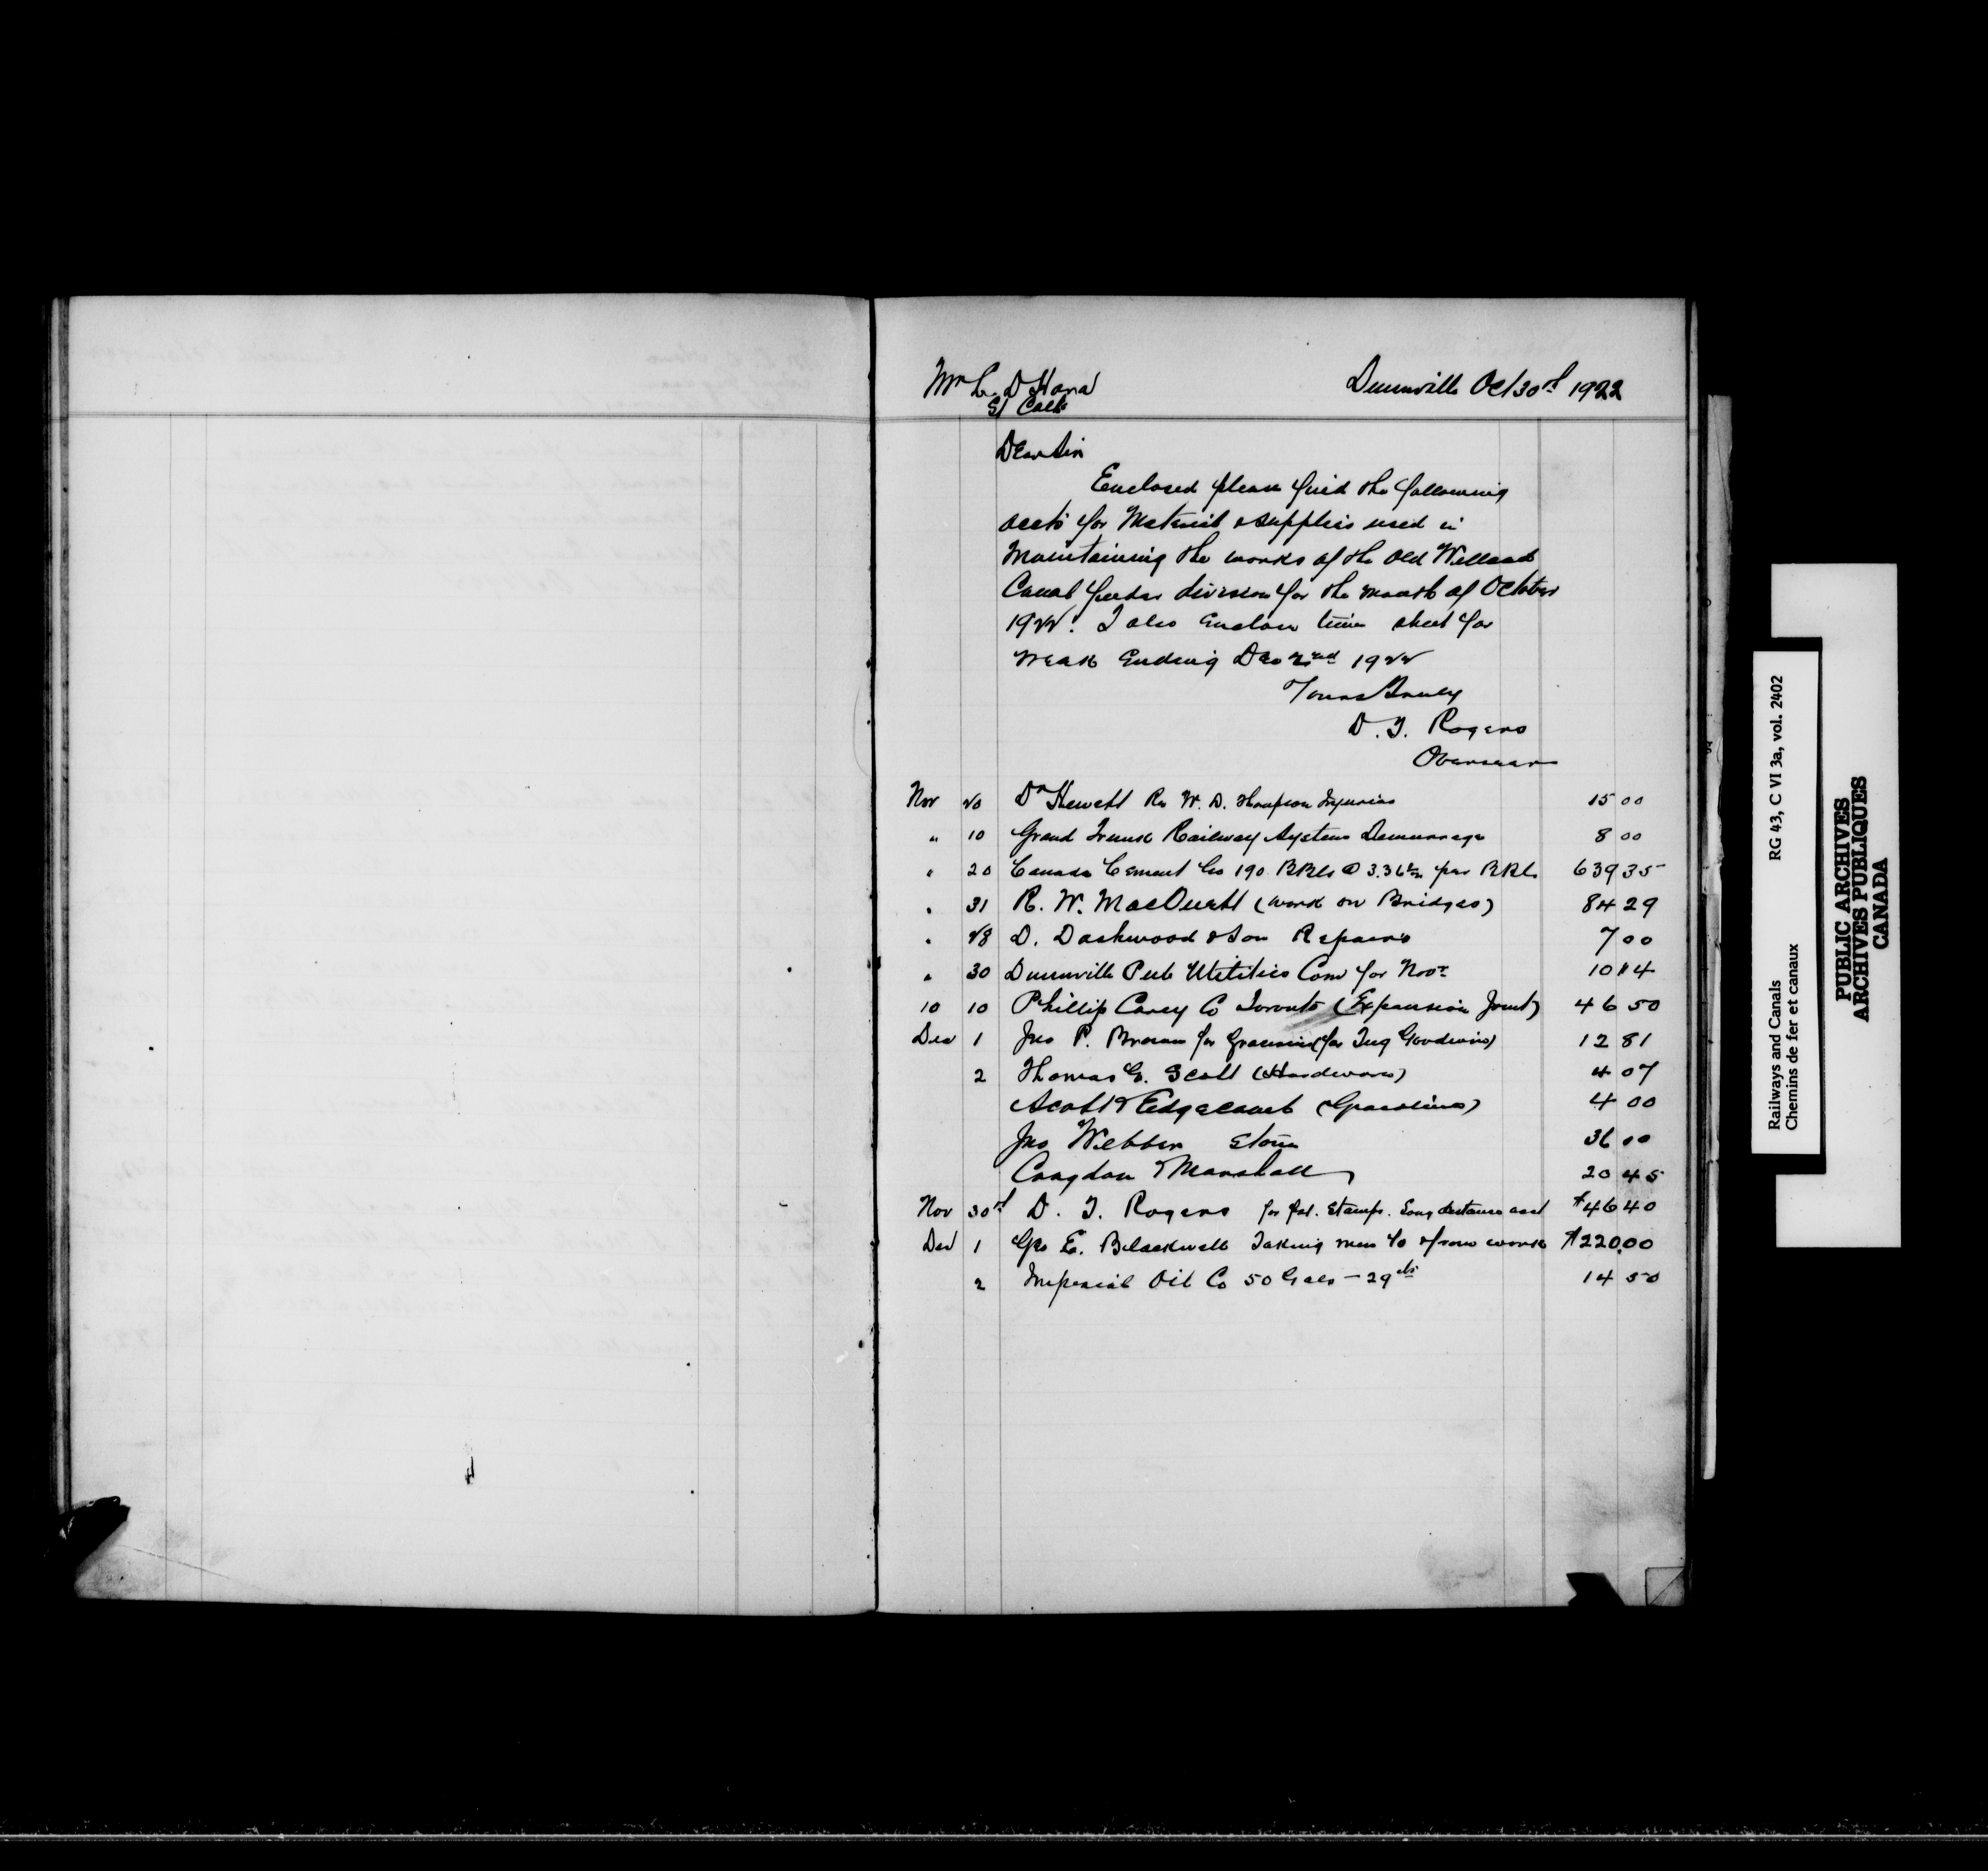 Mr L. D Hara Dunnville Oct 30th 1922
St Cath
Dear Sir
Enclosed please find the following
accts for Material & supplies used in
Maintaining the works of the Old Welland
Canal feeder division for the month of October
1922. I also Enclose time sheet for
week Ending Dec 2nd 1922
Yours Truly
D. T. Rogers
Overseer
Nov 20 Dr Hewett Re W. D. Thompson Injuries 15 00
" 10 Grand Trunk Railway System Demurrage 8 00
" 20 Canada Cement Co 190 BBls @ 3.36½ per BBl. 639 35
" 31 R. W. (work on Bridges) 84 29
" 28 D. Dashwood & Son Repairs 7 00
" 30 Dunnville Pub Utilities Com for Novr 10 14
10 10 Phillip Carey Co Toronto (Expansion Joint) 46 50
Dec 1 Jno P. Brown for (for Tug Goodwin) 12 81
2 Thomas G. Scott (Hardware) 4 07
Scott & Edgecomb (Gasoline) 4 00
Jno Webber Stone 36 00
Congdon & Marshall 20 45
Nov 30th D. T. Rogers for Stamps. Long distance acct $46 40
Dec 1 Geo E. Blackwell Taking men to & from work $220.00
2 Imperial Oil Co 50 Gals - 29cts 14 50
Railways and Canals RG 43, C VI 3a, vol. 2402
Chemins de fer et canaux
PUBLIC ARCHIVES
ARCHIVES PUBLIQUES
CANADA